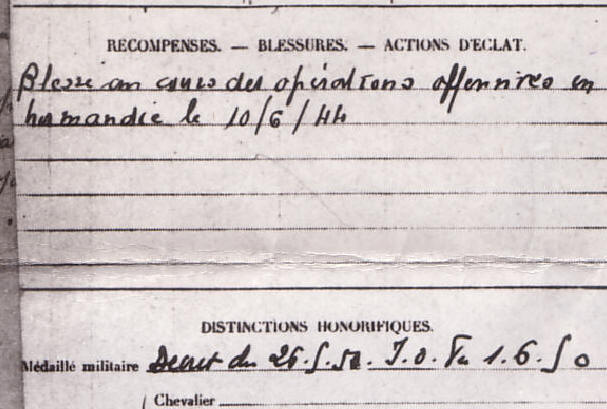 RECOMPENSES. — BLESSURES. — ACTIONS D'ECLAT.
Blessé au cours des opérations offensives en
Normandie le 10/6/44
DISTINCTIONS HONORIFIQUES.
Médaillé militaire Décret du 26.5.50. J.O. Du 1.6.50
Chevalier